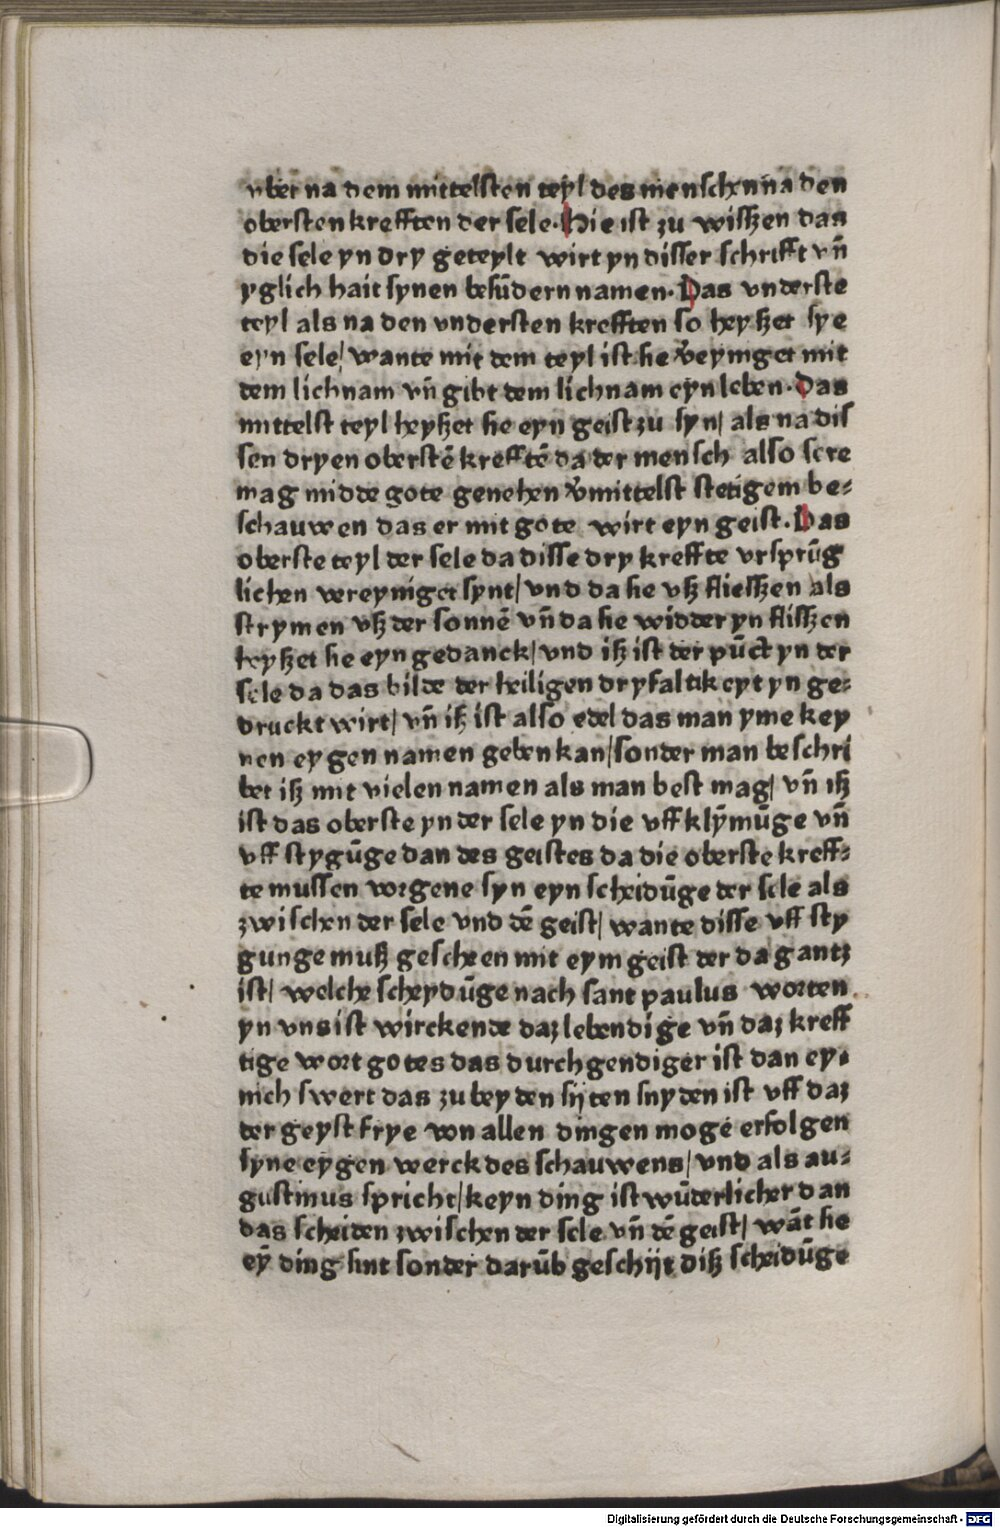 vber na dem mittelsten teyl des menschen na den
obersten krefften der sele. Hie ist zu wisszen das
die sele yn dry geteylt wirt yn disser schrifft vn̄
yglich hait synen besūdern namen. Das vnderste
teyl als na den vndersten krefften so heyszet sye
eyn sele/ wante mit dem teyl ist sie v̄eyniget mit
dem lichnam vn̄ gibt dem lichnam eyn leben. Das
mittelst teyl heyszet sie eyn geist zu syn/ als na dis
sen dryen oberstē krefftē da der mensch also sere
mag midde gote genehen v̄mittelst stetigem be-
schauwen das er mit gote wirt eyn geist. Das
oberste teyl der sele da disse dry kreffte vrsprūg
lichen vereyniget synt/ vnd da sie vsz fliesszen als
strymen vsz der sonnē vn̄ da sie widder yn flisszen
heyszet sie eyn gedanck/ vnd isz ist der pūct yn der
sele da das bilde der heiligen dryfaltikeyt yn ge-
druckt wirt/ vn̄ isz ist also edel das man yme key
nen eygen namen geben kan/ sonder man beschri
bet isz mit vielen namen als man best mag/ vn̄ isz
ist das oberste yn der sele yn die vff klȳmūge vn̄
vff stygūge dan des geistes da die oberste kreff-
te mussen vorgene syn eyn scheidūge der sele als
zwischen der sele vnd dē geist/ wante disse vff sty
gunge musz gescheen mit eym geist der da gantz
ist/ welche scheydūge nach sant paulus worten
yn vns ist wirckende daz lebendige vn̄ daz kreff
tige wort gotes das durchgendiger ist dan ey-
nich swert das zu beyden sijten snyden ist vff daz
der geyst frye von allen dingen mogē erfolgen
syne eygen werck des schauwens/ vnd als au-
gustinus spricht/ keyn ding ist wūderlicher dan
das scheiden zwischen der sele vn̄ dē geist/ wāt sie
eȳ ding sint sonder darūb geschijt disz scheidūge
Digitalisierung gefördert durch die Deutsche Forschungsgemeinschaft - DFG